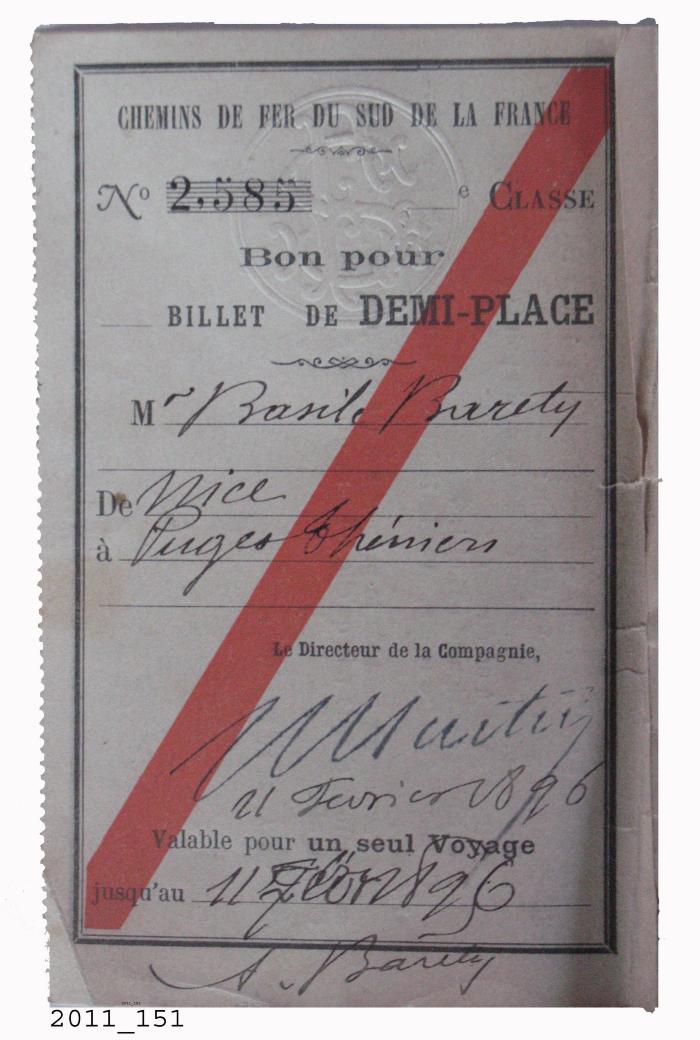 CHEMINS DE FER DU SUD DE LA FRANCE
No 2.585 e CLASSE
Bon pour
BILLET DE DEMI-PLACE
Mr Basile Barety
De Nice
à Puges théniers
Le Directeur de la Compagnie,
11 Fevrier 1896
Valable pour un seul Voyage
jusqu'au 11 1896
A. Barety
2011_151